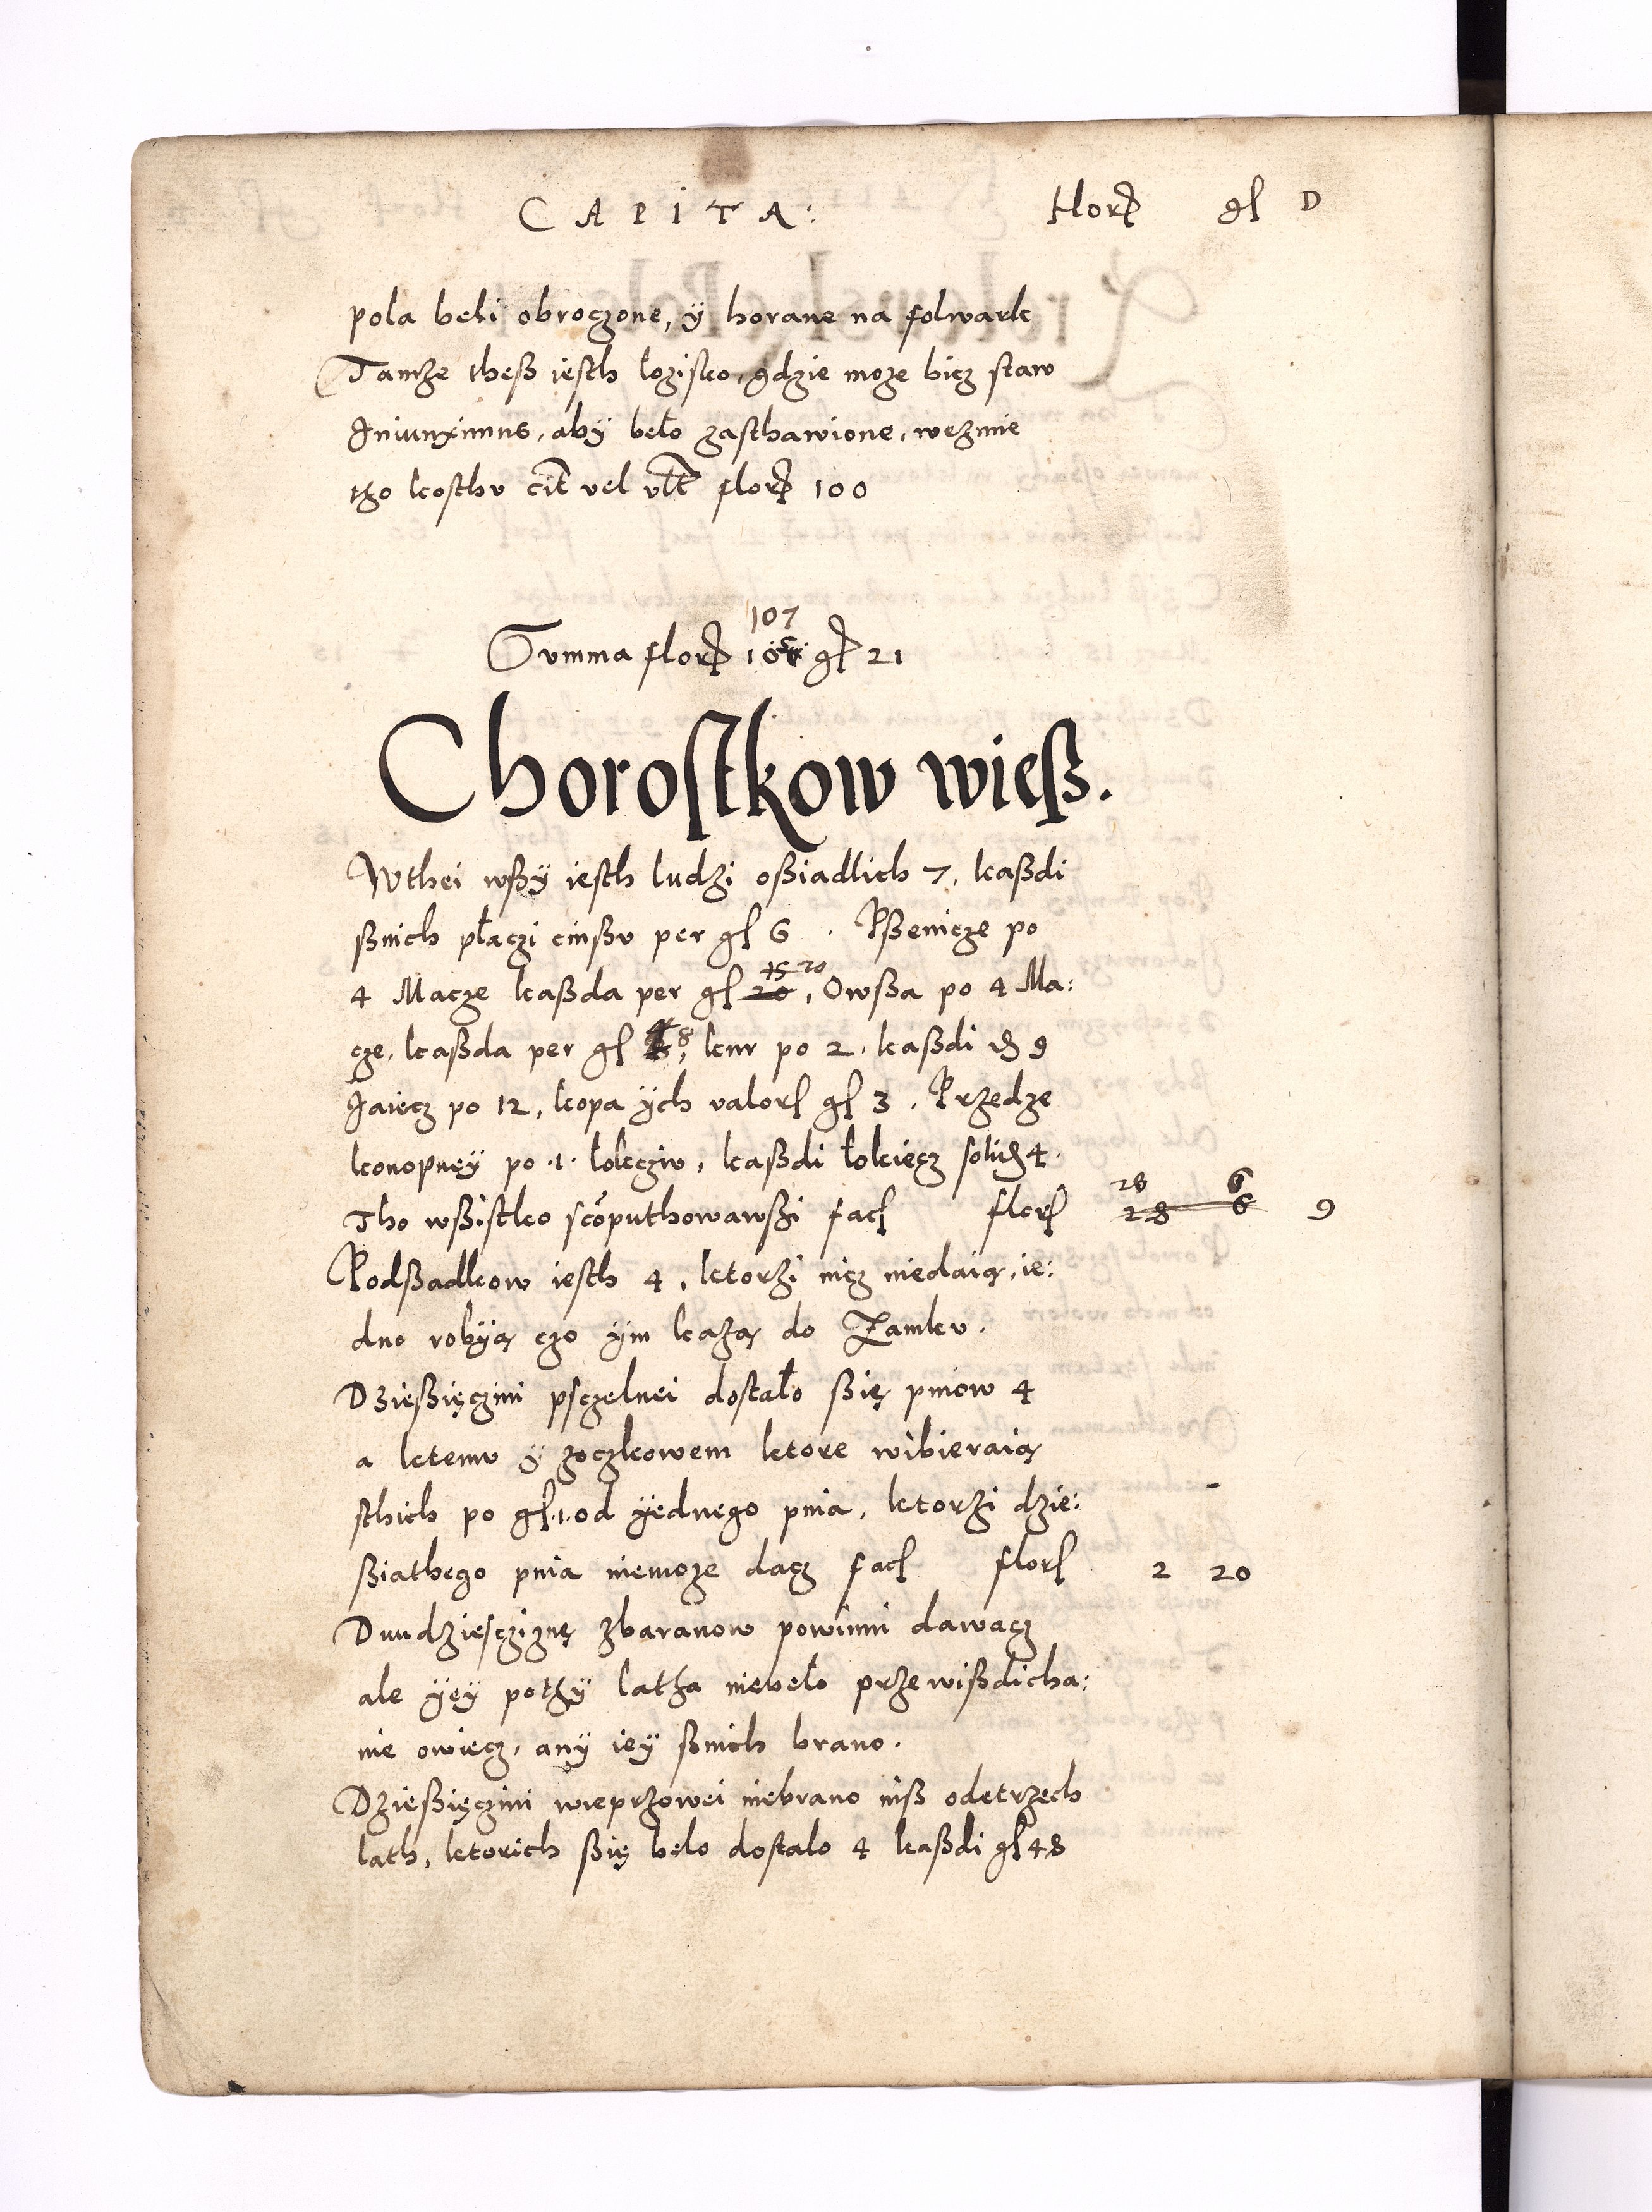 CAPITA: flor gl D
pola beli obroczone, ÿ horane na folwark
Tamże theß iesth lozisko, gdzie moze bicz staw
Iniunximus, aby beło zasthawione, wezmie
tho kosthv cit vel vlt flor 100
107
Summa flor gl 21
Chorostkow wieß.
Wthei wßÿ iesth ludzi oßiadlich 7, kaßdi
ßnich płaczi cinßv per gl 6. Pßenicze po
15 20
4 Macze kaßda per gl 20, Owßa po 4 Ma:
cze, kaßda per gl 8, kur po 2, kaßdi d 9
Jaiecz po 12, kopa ÿch valor gl 3. Przedze
konopnęÿ po .1. łokcziv, kaßdi łokiecz solid 4.
28 6
Tho wßistko scomputhowawßi fac flor 28 6 9
Podßadkow iesth 4, ktorzi nicz niedaią, ie:
dno robÿą czo ÿm każą do Zamkv.
Dzießięczini psczelnei dostało ßię pniow 4
a ktemv ÿ zoczkowem ktore wibieraią
sthich po gl .1. od ÿednego pnia, ktorzi dzie:
ßiathego pnia niemoze dacz fac flor 2 20
Dwudziescziznę zbaranow powinni dawacz
ale ÿeÿ pothÿ latha niebeło przewißdicha:
nie owiecz, anÿ ieÿ ßnich brano.
Dzießięczini wieprzowei niebrano niß odetrzech
lath, ktorich ßię beło dostalo 4 kaßdi gl 48